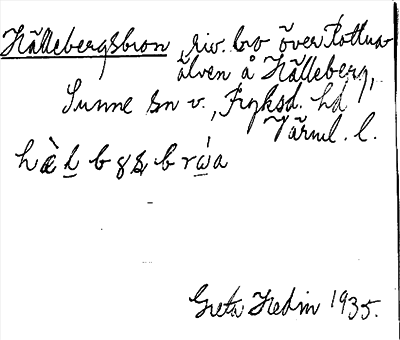 Hällebergsbron, riv. bro över Rottna
älven å Hälleberg,
Sunne sn v., Fryksd. hd
Värml. l.
hæ̀ḻbgsbrẃa
Greta Hedin 1935.